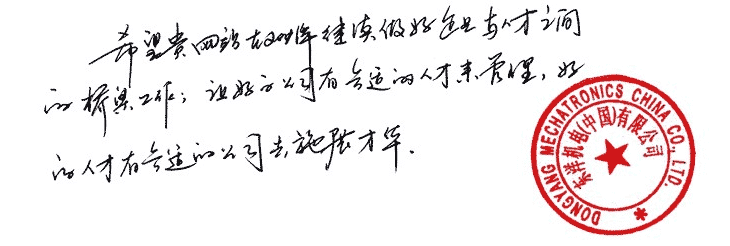 希望贵网站在2004年继续做好企业与人才之间
的桥梁工作；让好的公司有合适的人才来管理，好
的人才有合适的公司去施张才华.
DONGYANG MECHATRONICS CHINA CO., LTD.
东洋机电(中国)有限公司